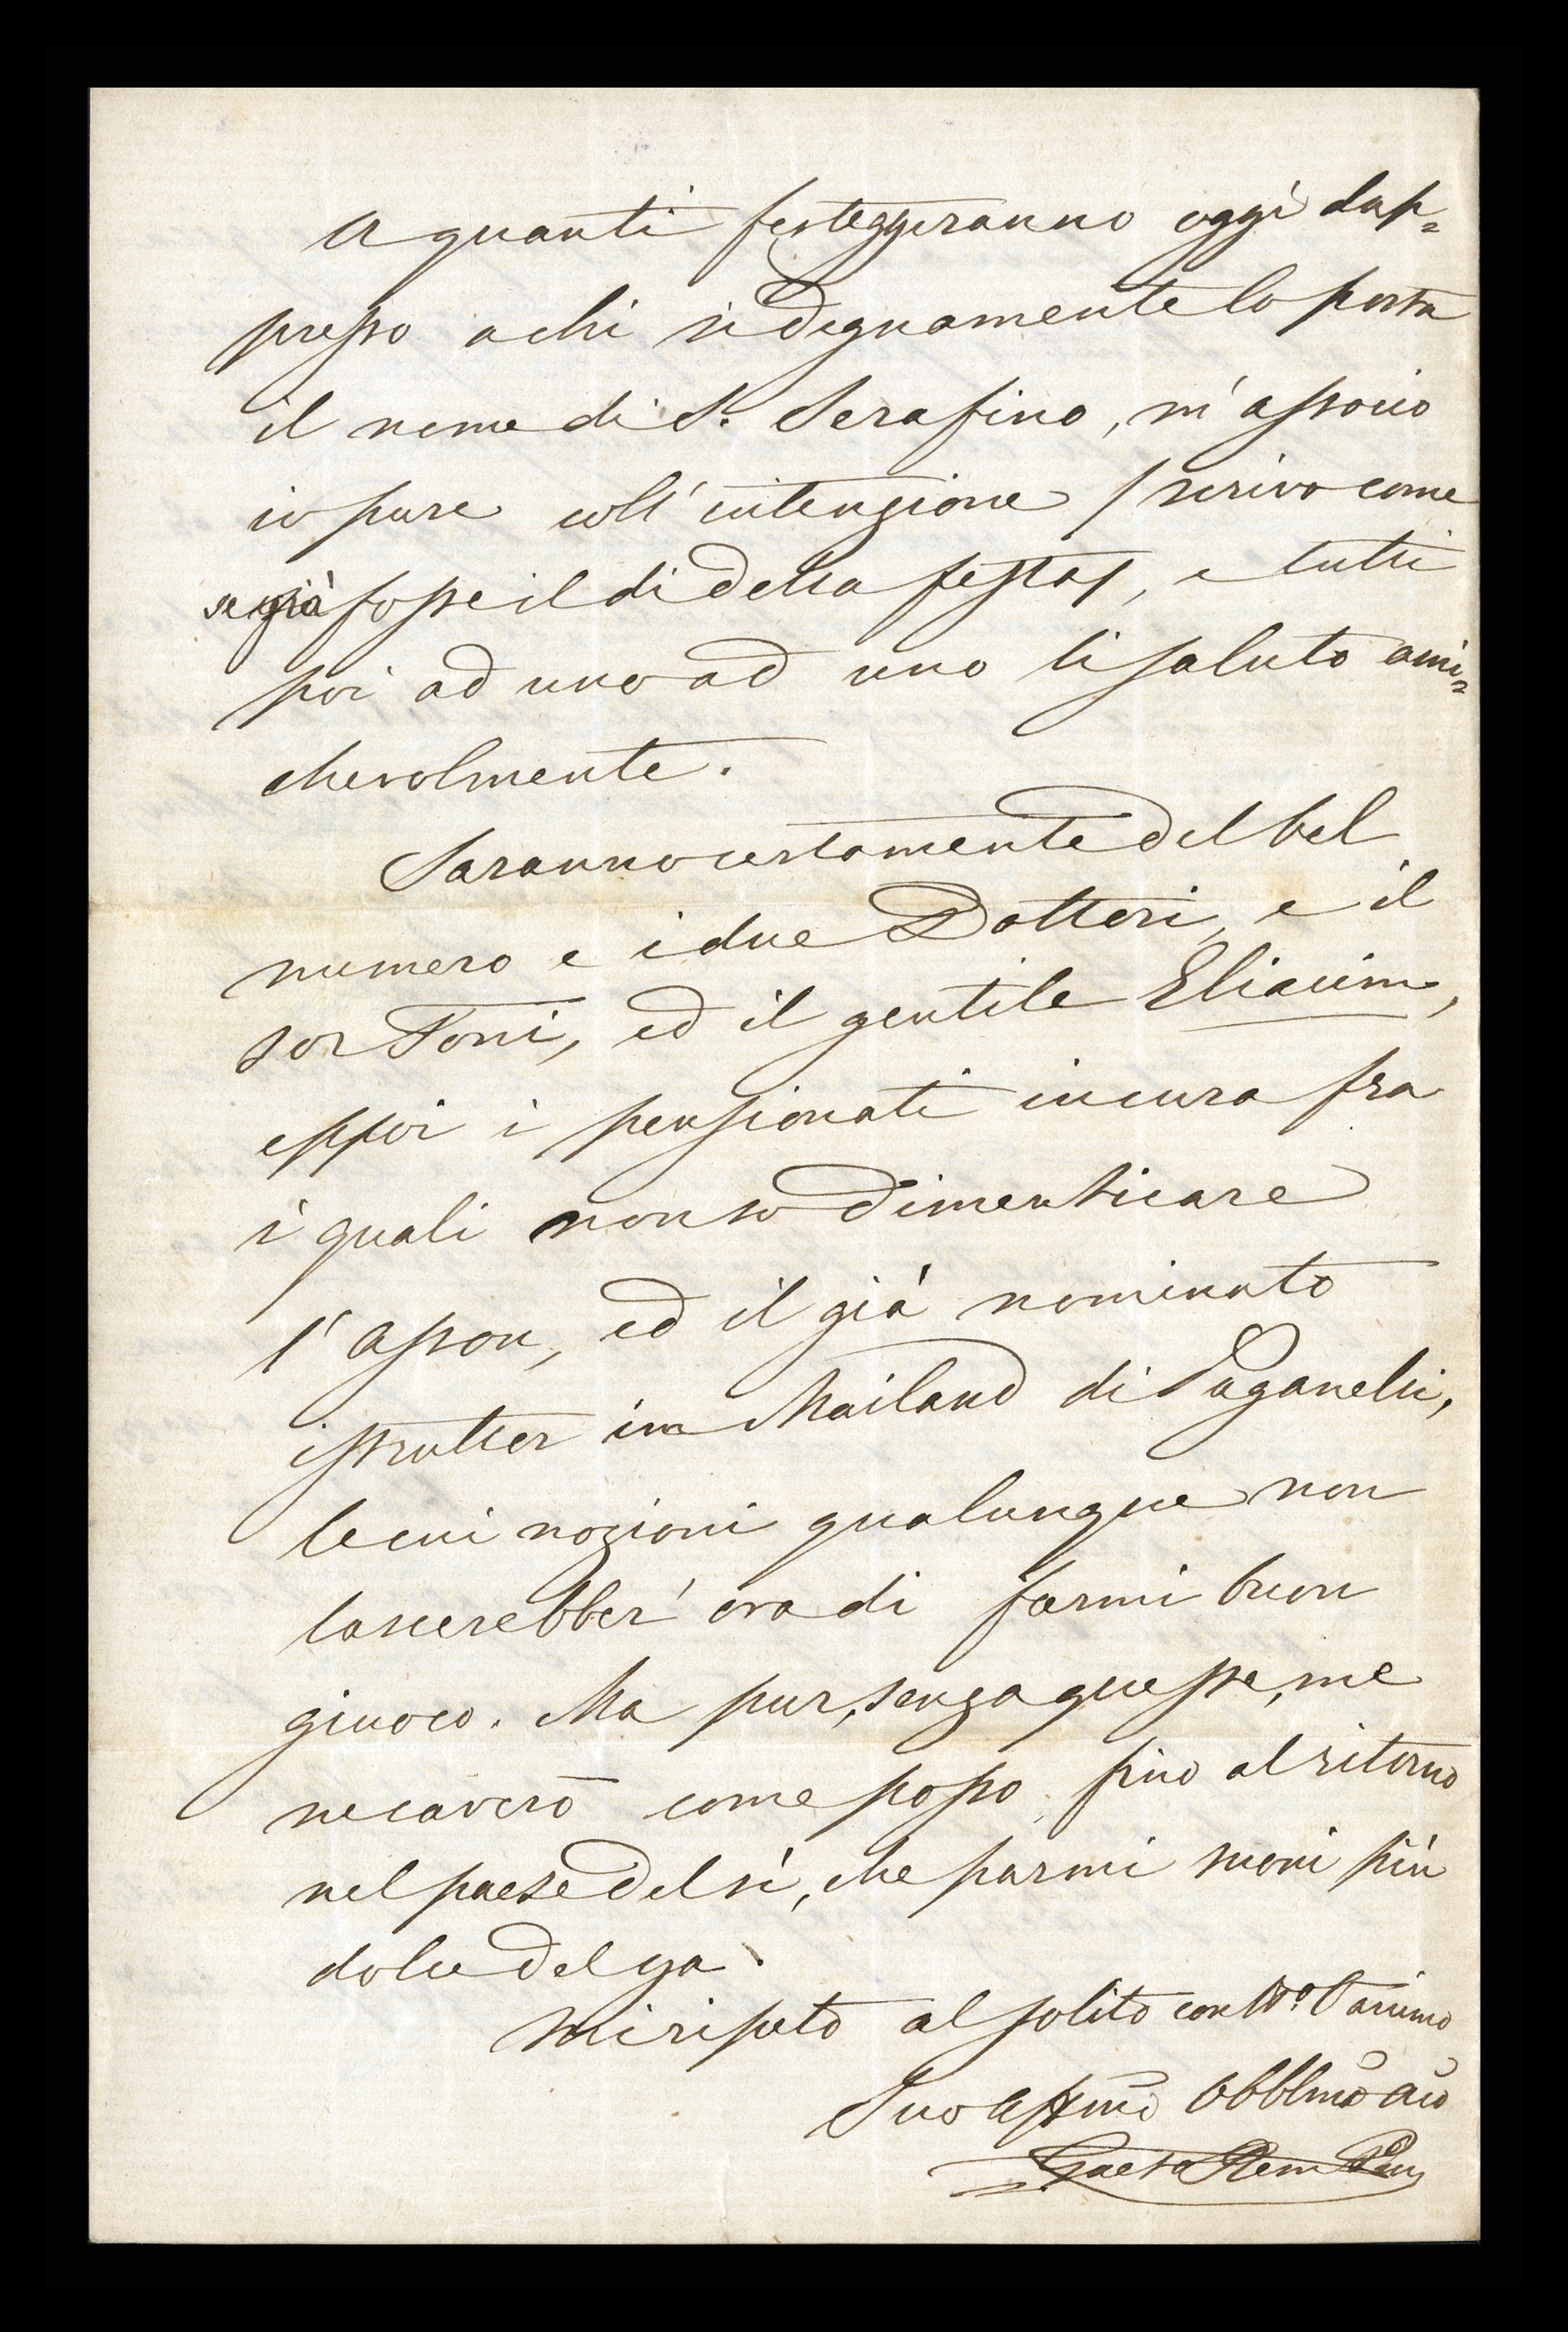 A quanti festeggeranno oggi dap=
presso a chi sì degnamente lo porta
il nome di S. Serafino, m'associo
io pure coll'intenzione / scrivo come
se già fosse il dì della festa /, e tutti
poi ad uno ad uno li saluto ami=
chevolmente.
Saranno certamente del bel
numero e i due Dottori, e il
sor Toni, ed il gentile Eliacim,
eppoi i pensionati in cura fra
i quali non so dimenticare
l'Asson, ed il già nominato
istrutter in Mailand di Paganelli,
le cui nozioni qualunque non
lascerebber' ora di farmi buon
giuoco. Ma pur, senza queste, me
ne caverò come posso fino al ritorno
nel paese del sì, che parmi suoni più
dolce del ya.
Mi ripeto al solito con tt.º l'animo
Suo Affmo Obblmo Aico